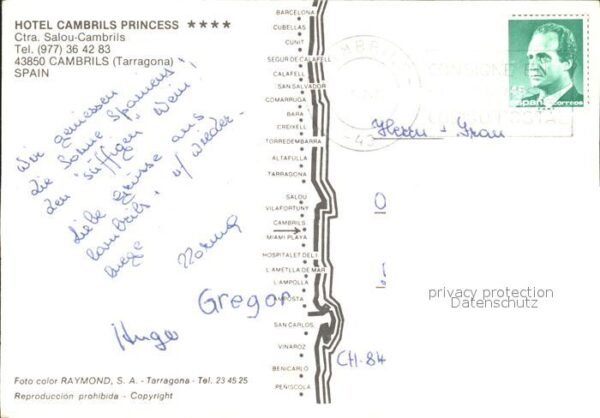 HOTEL CAMBRILS PRINCESS ★★★★
Ctra. Salou-Cambrils
Tel. (977) 36 42 83
43850 CAMBRILS (Tarragona)
SPAIN
Wir geniessen
die Sonne Spaniens,
den süffigen Wein!
Liebe Grüsse aus
Cambrils,
Gregor
Hugo
BARCELONA
CUBELLAS
CUNIT
SEGUR DE CALAFELL
CALAFELL
SAN SALVADOR
COMARRUGA
BARA
CREIXELL
TORREDEMBARRA
ALTAFULLA
TARRAGONA
SALOU
VILAFORTUNY
CAMBRILS
MIAMI PLAYA
HOSPITALET DEL I.
L'AMETLLA DE MAR
L'AMPOLLA
AMPOSTA
SAN CARLOS
VINAROZ
BENICARLO
PEÑISCOLA
45
España correos
Herrn + Frau
privacy protection
Datenschutz
CH-84
Foto color RAYMOND, S. A. - Tarragona - Tel. 23 45 25
Reproducción prohibida - Copyright